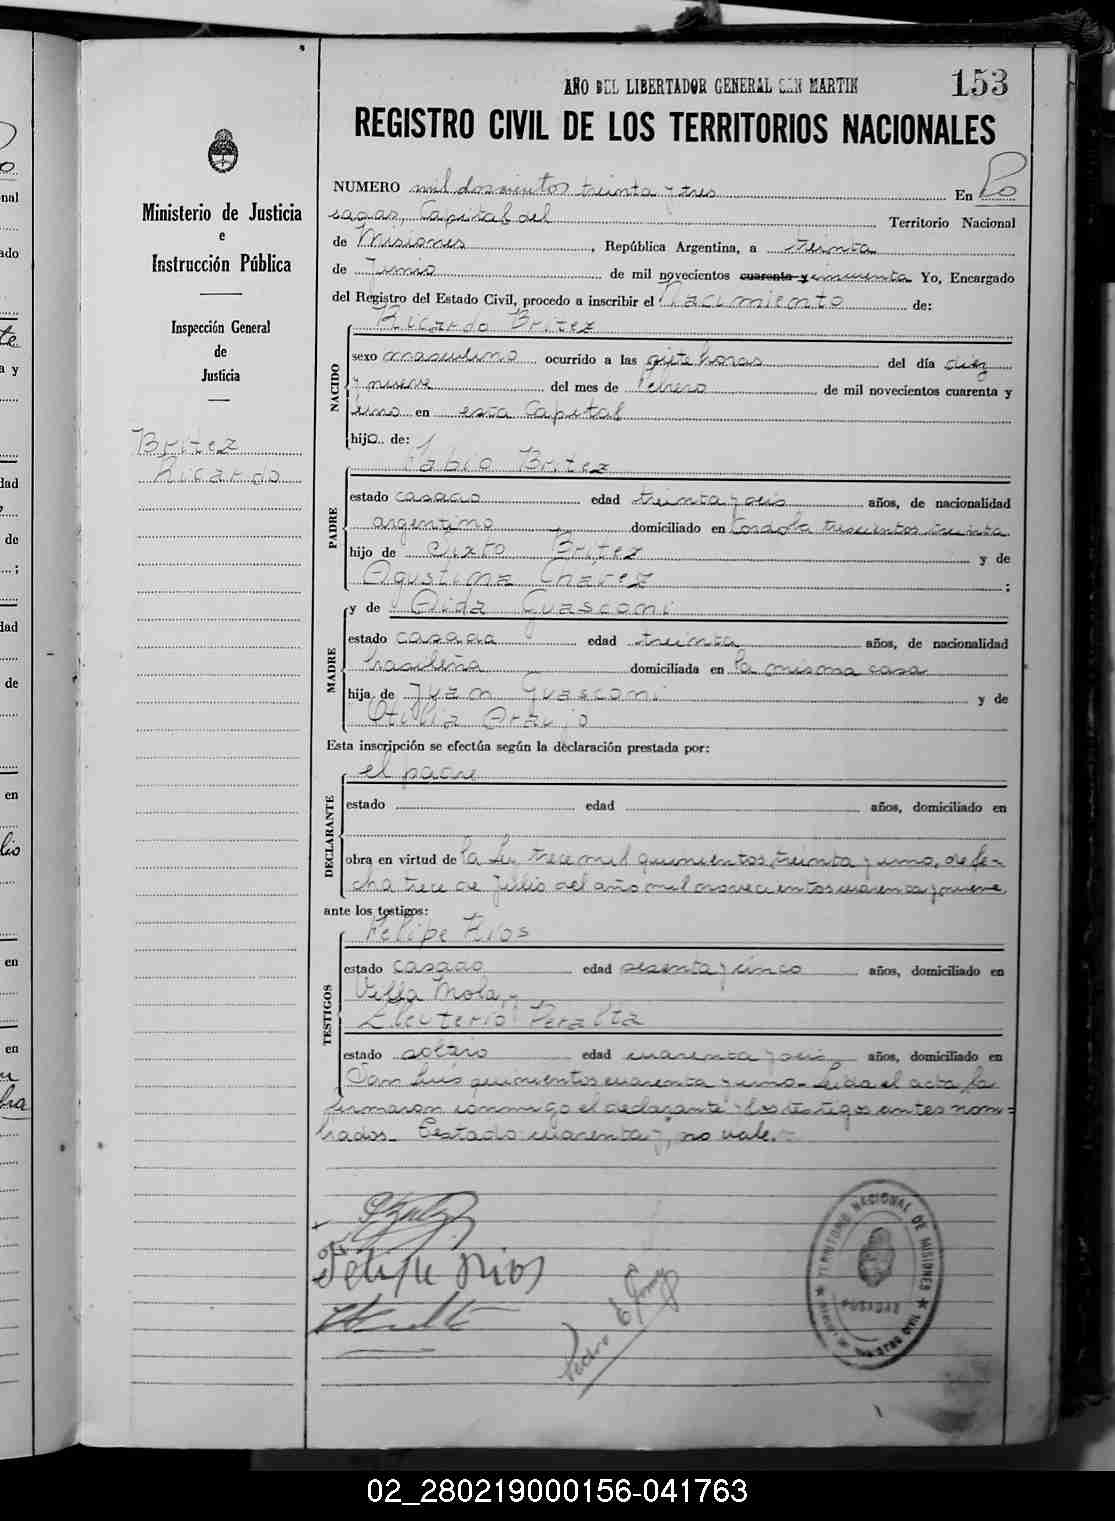 AÑO DEL LIBERTADOR GENERAL SAN MARTIN
153
REGISTRO CIVIL DE LOS TERRITORIOS NACIONALES
Ministerio de Justicia
e
Instrucción Pública
Inspección General
de
Justicia
Britez
Ricardo
NUMERO mil doscientos treinta y tres En Po
sadas, Capital del Territorio Nacional
de Misiones, República Argentina, a treinta
de Junio de mil novecientos cuarenta y cincuenta Yo, Encargado
del Registro del Estado Civil, procedo a inscribir el Nacimiento de:
NACIDO
Ricardo Britez
sexo masculino ocurrido a las siete horas del día diez
y nueve del mes de Febrero de mil novecientos cuarenta y
uno en esta Capital
hijo de:
PADRE
Fabio Britez
estado casado edad treinta y seis años, de nacionalidad
argentino domiciliado en Cordoba trescientos treinta
hijo de Sixto Britez y de
Agustina Chávez ;
MADRE
y de Aida Guasconi
estado casada edad treinta años, de nacionalidad
brasileña domiciliada en la misma casa
hija de Juan Guasconi y de
Otilia Araujo
Esta inscripción se efectúa según la declaración prestada por:
DECLARANTE
el padre
estado edad años, domiciliado en
obra en virtud de la Ley trece mil quinientos treinta y uno, de fe-
cha trece de Julio del año mil novecientos cuarenta y nueve
ante los testigos:
TESTIGOS
Felipe Rios
estado casado edad sesenta y cinco años, domiciliado en
Villa Mola, y
Eleuterio Peralta
estado soltero edad cuarenta y seis años, domiciliado en
San Luis quinientos cuarenta y uno. Leida el acta la
firmaron conmigo el declarante y los testigos antes nom-
brados. Testado: cuarenta y, no vale.-
Felipe Rios
Pedro E Gomez
TERRITORIO NACIONAL DE MISIONES
POSADAS
02_280219000156-041763